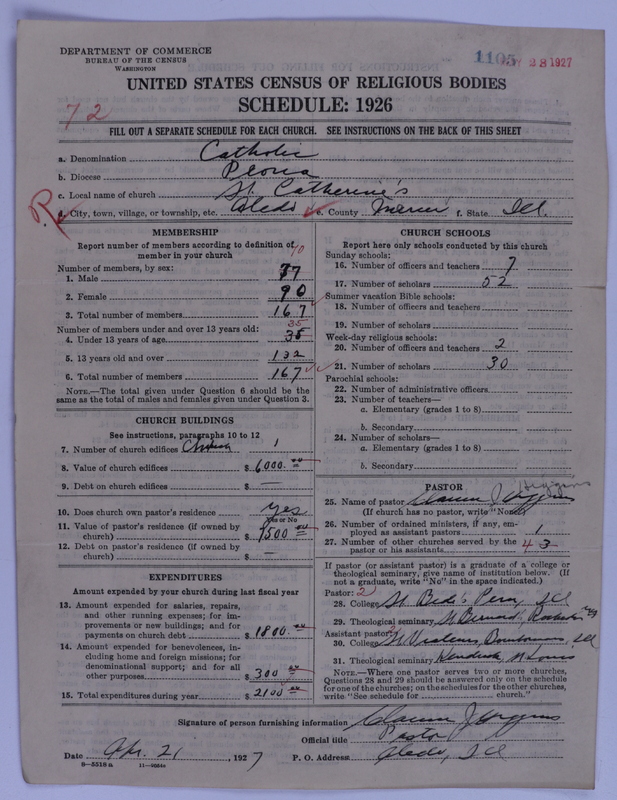 DEPARTMENT OF COMMERCE
BUREAU OF THE CENSUS
WASHINGTON
1105 28 1927
UNITED STATES CENSUS OF RELIGIOUS BODIES
SCHEDULE: 1926
72
FILL OUT A SEPARATE SCHEDULE FOR EACH CHURCH. SEE INSTRUCTIONS ON THE BACK OF THIS SHEET
a. Denomination Catholic
b. Diocese Peoria
c. Local name of church St. Catherine's
d. City, town, village, or township, etc. Aledo e. County Mercer f. State Ill.
MEMBERSHIP
Report number of members according to definition of member in your church
Number of members, by sex:
1. Male 77
2. Female 90
3. Total number of members 167
Number of members under and over 13 years old: 35
4. Under 13 years of age 35
5. 13 years old and over 132
6. Total number of members 167
NOTE.—The total given under Question 6 should be the
same as the total of males and females given under Question 3.
CHURCH BUILDINGS
See instructions, paragraphs 10 to 12
7. Number of church edifices 1
8. Value of church edifices $ 6000.
9. Debt on church edifices $ —
10. Does church own pastor's residence yes
Yes or No
11. Value of pastor's residence (if owned by
church) $ 1500
12. Debt on pastor's residence (if owned by
church) $ —
EXPENDITURES
Amount expended by your church during last fiscal year
13. Amount expended for salaries, repairs,
and other running expenses; for im-
provements or new buildings; and for
payments on church debt $ 1800.
14. Amount expended for benevolences, in-
cluding home and foreign missions; for
denominational support; and for all
other purposes $ 300
15. Total expenditures during year $ 2100
CHURCH SCHOOLS
Report here only schools conducted by this church
Sunday schools:
16. Number of officers and teachers 7
17. Number of scholars 52
Summer vacation Bible schools:
18. Number of officers and teachers
19. Number of scholars
Week-day religious schools:
20. Number of officers and teachers 2
21. Number of scholars 30
Parochial schools:
22. Number of administrative officers
23. Number of teachers—
a. Elementary (grades 1 to 8)
b. Secondary
24. Number of scholars—
a. Elementary (grades 1 to 8)
b. Secondary
PASTOR
Higgins
25. Name of pastor J Higgins
(If church has no pastor, write "None")
26. Number of ordained ministers, if any, em-
ployed as assistant pastors 1
27. Number of other churches served by the
pastor or his assistants 4 3
If pastor (or assistant pastor) is a graduate of a college or
theological seminary, give name of institution below. (If
not a graduate, write "No" in the space indicated.)
Pastor: 2
28. College St Bede's Peru, Ill
29. Theological seminary St Bernard, Rochester
Assistant pastor:
30. College St Viateurs, Bourbonnais, Ill
31. Theological seminary Kenrick, St Louis
NOTE.—Where one pastor serves two or more churches,
Questions 28 and 29 should be answered only on the schedule
for one of the churches; on the schedules for the other churches,
write "See schedule for church."
Signature of person furnishing information J Higgins
Official title Pastor
Date Apr. 21, 1927 P. O. Address Aledo, Ill
8—5518 a